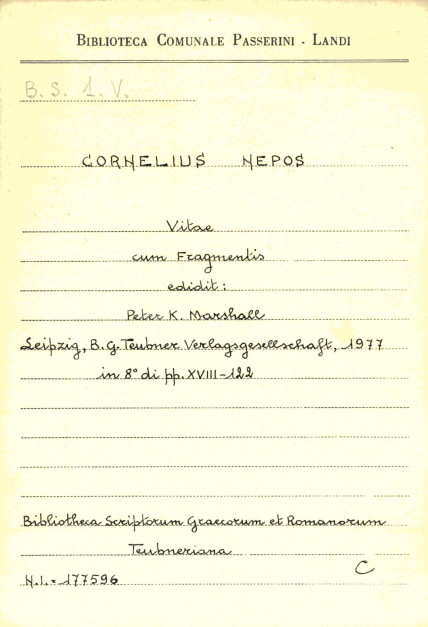 BIBLIOTECA COMUNALE PASSERINI - LANDI
B. S. 1. V.
CORNELIUS NEPOS
Vitae
cum Fragmentis
edidit:
Peter K. Marshall
Leipzig, B. G. Teubner Verlagsgesellschaft, 1977
in 8° di pp. XVIII-122
Bibliotheca Scriptorum Graecorum et Romanorum
Teubneriana
C
N.I. = 177596